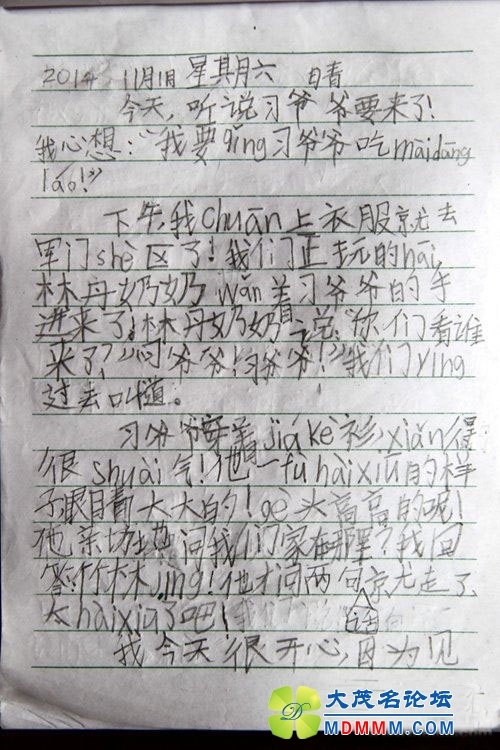 2014 11月1日 星其月六 日青
今天,听说习爷爷要来了!
我心想:“我要qǐng习爷爷吃màidāng
láo!”
下午,我chuān上衣服就去
军门shè区了!我们正玩的hāi,
林丹奶奶wǎn着习爷爷的手
进来了,林丹奶奶说:“你们看谁
来了?”“习爷爷!习爷爷!”我们yíng
过去叫道。
习爷爷穿着jiákè衫,xiǎn得
很shuài气!他一fù hàixiū的样
子眼睛大大的!gè头高高的呢!
他亲切地问我们家在哪里?我回
答:竹林jìng!他才问两句就走了
太hàixiū了吧!
我今天很开心,因为见
大茂名论坛
MDMMM.COM